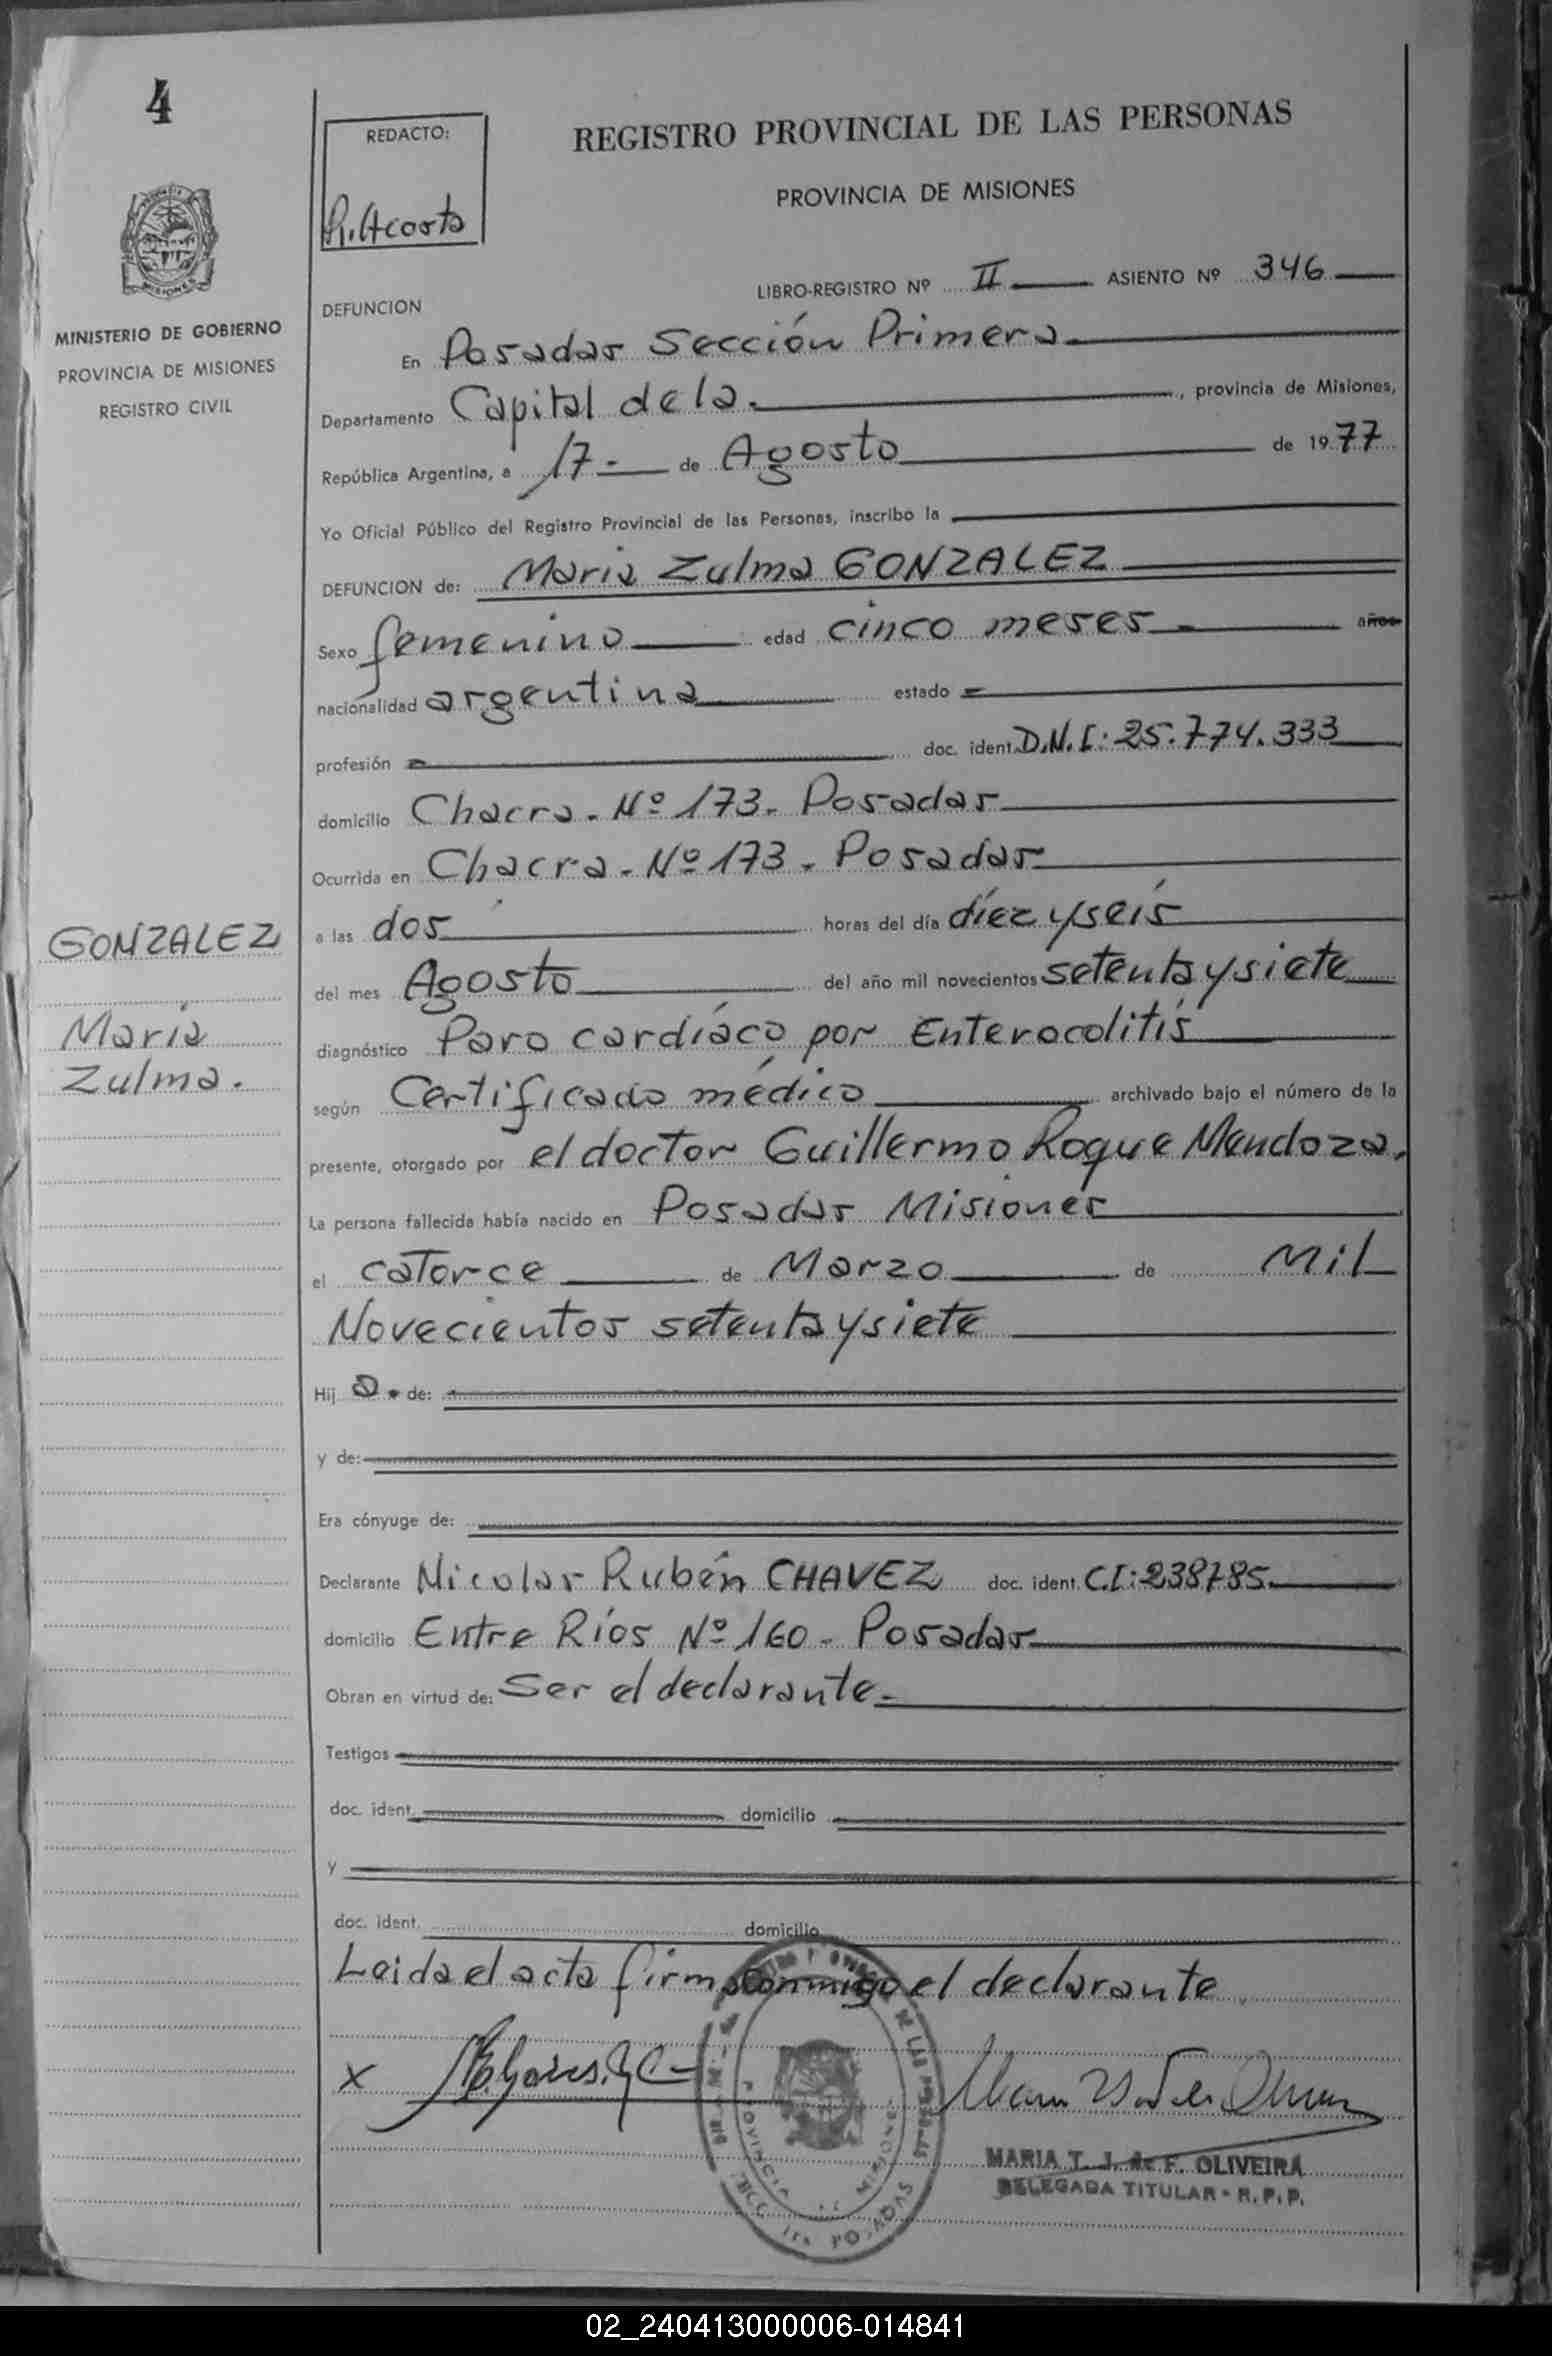 4
REDACTO:
R. Acosta
REGISTRO PROVINCIAL DE LAS PERSONAS
PROVINCIA DE MISIONES
MISIONES
MINISTERIO DE GOBIERNO
PROVINCIA DE MISIONES
REGISTRO CIVIL
LIBRO-REGISTRO Nº II ASIENTO Nº 346
DEFUNCION
En Posadas Sección Primera.
Departamento Capital de la. , provincia de Misiones,
República Argentina, a 17 - de Agosto de 1977
Yo Oficial Público del Registro Provincial de las Personas, inscribo la
DEFUNCION de: Maria Zulma GONZALEZ
Sexo femenino edad cinco meses - años
nacionalidad argentina estado =
profesión = doc. ident. D.N.I: 25.774.333
domicilio Chacra. Nº 173. Posadas
Ocurrida en Chacra. Nº 173. Posadas
a las dos horas del día díez y seís
del mes Agosto del año mil novecientos setenta y siete
diagnóstico Paro cardíaco por Enterocolitís
según Certificado médico archivado bajo el número de la
presente, otorgado por el doctor Guillermo Roque Mendoza.
La persona fallecida había nacido en Posadas Misiones
el catorce de Marzo de Mil
Novecientos setenta y siete
Hij a. de:
y de:
Era cónyuge de:
Declarante Nicolas Rubén CHAVEZ doc. ident. C.I: 238785.
domicilio Entre Ríos Nº 160. Posadas
Obran en virtud de: Ser el declarante.
Testigos
doc. ident. domicilio
y
doc. ident. domicilio
Leida el acta firma conmigo el declarante
x
GONZALEZ
Maria
Zulma.
MARIA T. J. de F. OLIVEIRA
DELEGADA TITULAR - R.P.P.
PROVINCIA DE MISIONES
POSADAS
02_240413000006-014841